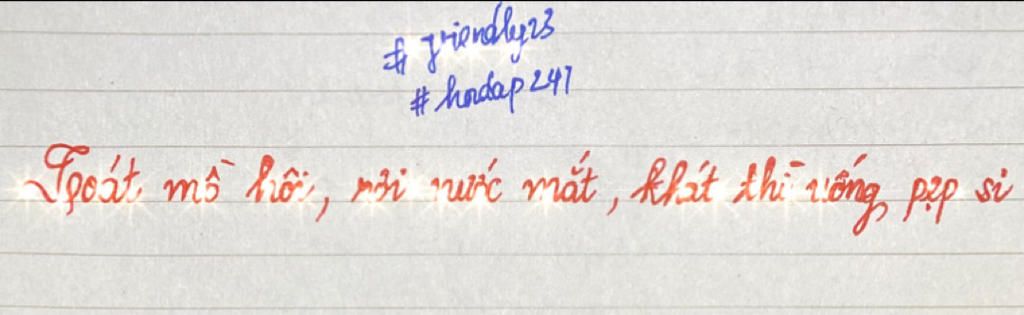 # friendly23
# hoidap247
Toát mồ hôi, rơi nước mắt, khát thì uống pẹp si